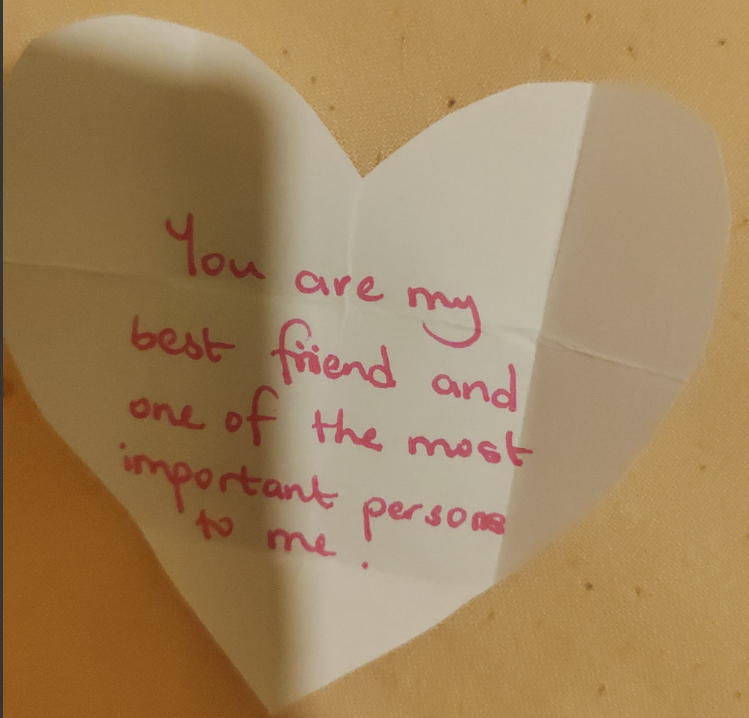 You are my
best friend and
one of the most
important persons
to me.